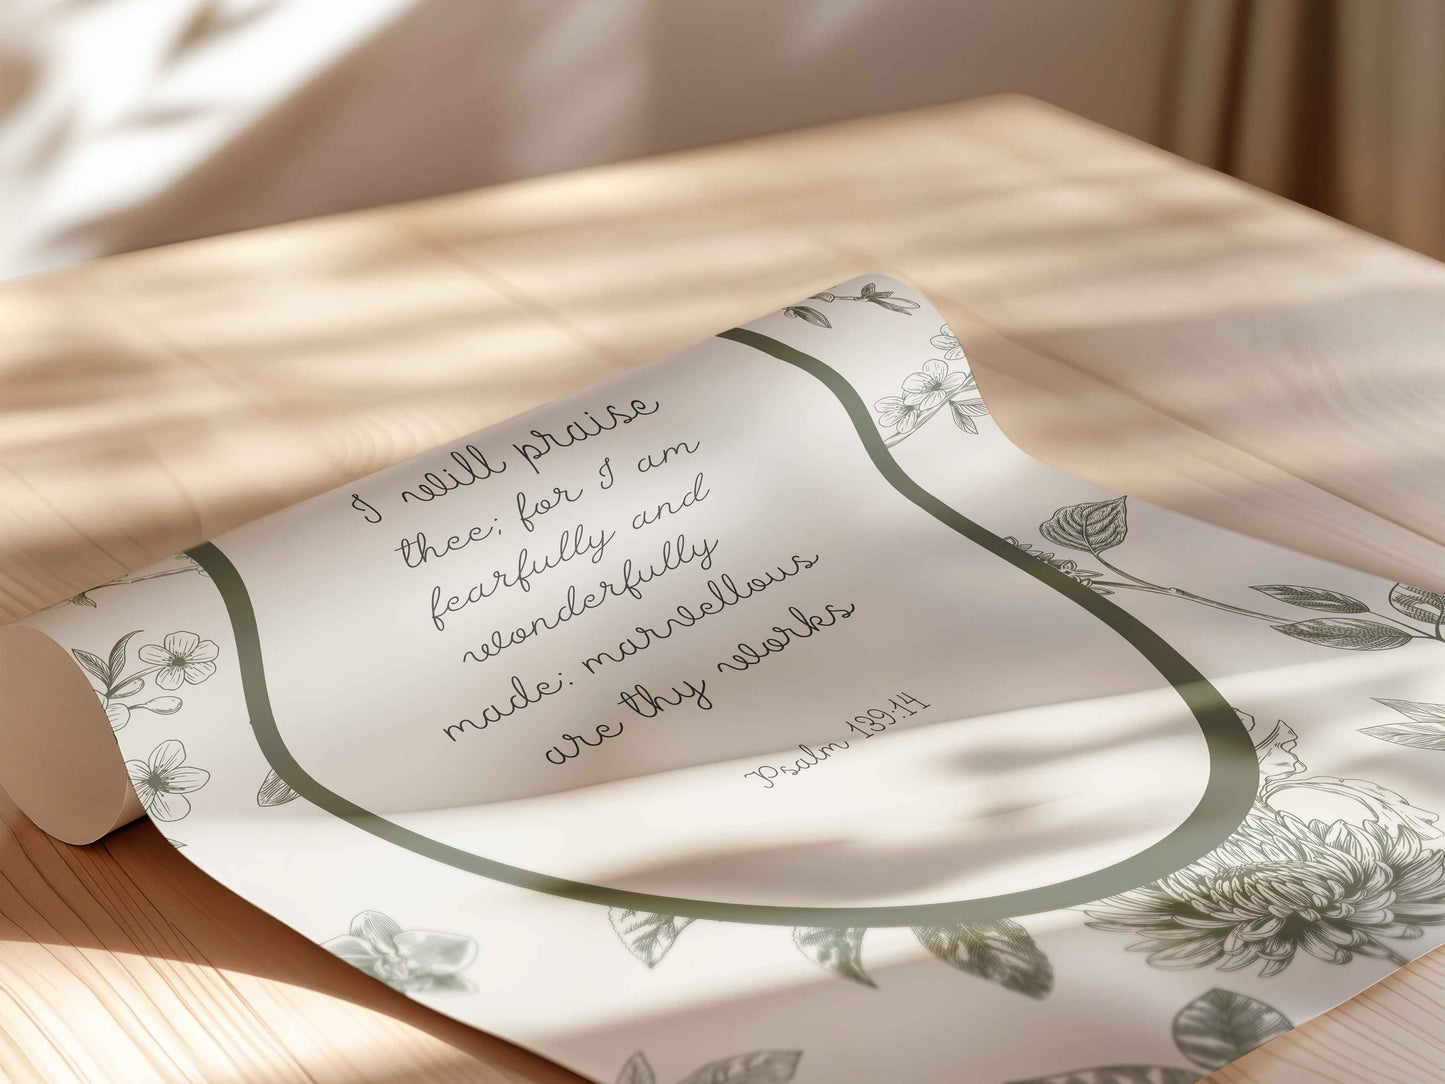 I will praise
thee; for I am
fearfully and
wonderfully
made: marvellous
are thy works
Psalm 139:14